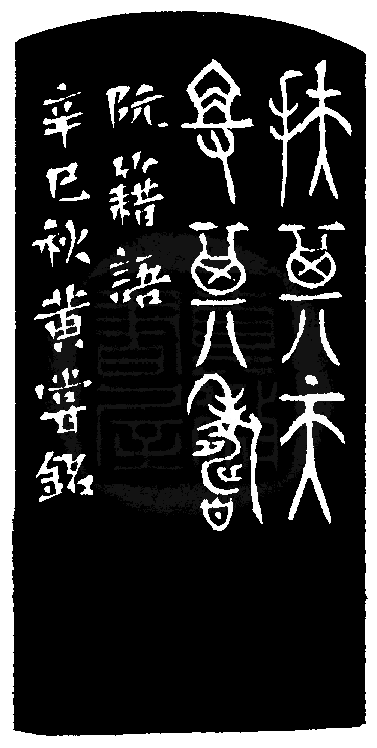 扶其天
其壽
阮籍語
辛巳秋黄嘗銘